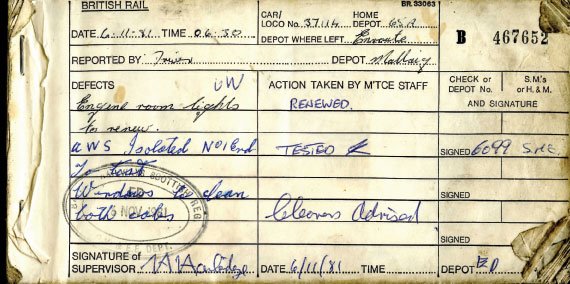 BRITISH RAIL
BR.33063
CAR/LOCO No. 37114 HOME DEPOT
DATE 6-11-81 TIME 06.30
DEPOT WHERE LEFT Enroute
B 467652
REPORTED BY Driver DEPOT Mallaig
DEFECTS
ACTION TAKEN BY M'TCE STAFF
CHECK or DEPOT No.
S.M's or H.&M.
AND SIGNATURE
Engine room lights
RENEWED.
to renew.
AWS Isolated No1 End
TESTED
SIGNED 6099
To test
Windows to clean
both cabs
Cleaners Advised
SIGNED
SCOTTISH REG
NOV
DEPT.
SIGNED
SIGNATURE OF SUPERVISOR
DATE 6/11/81 TIME
DEPOT ED